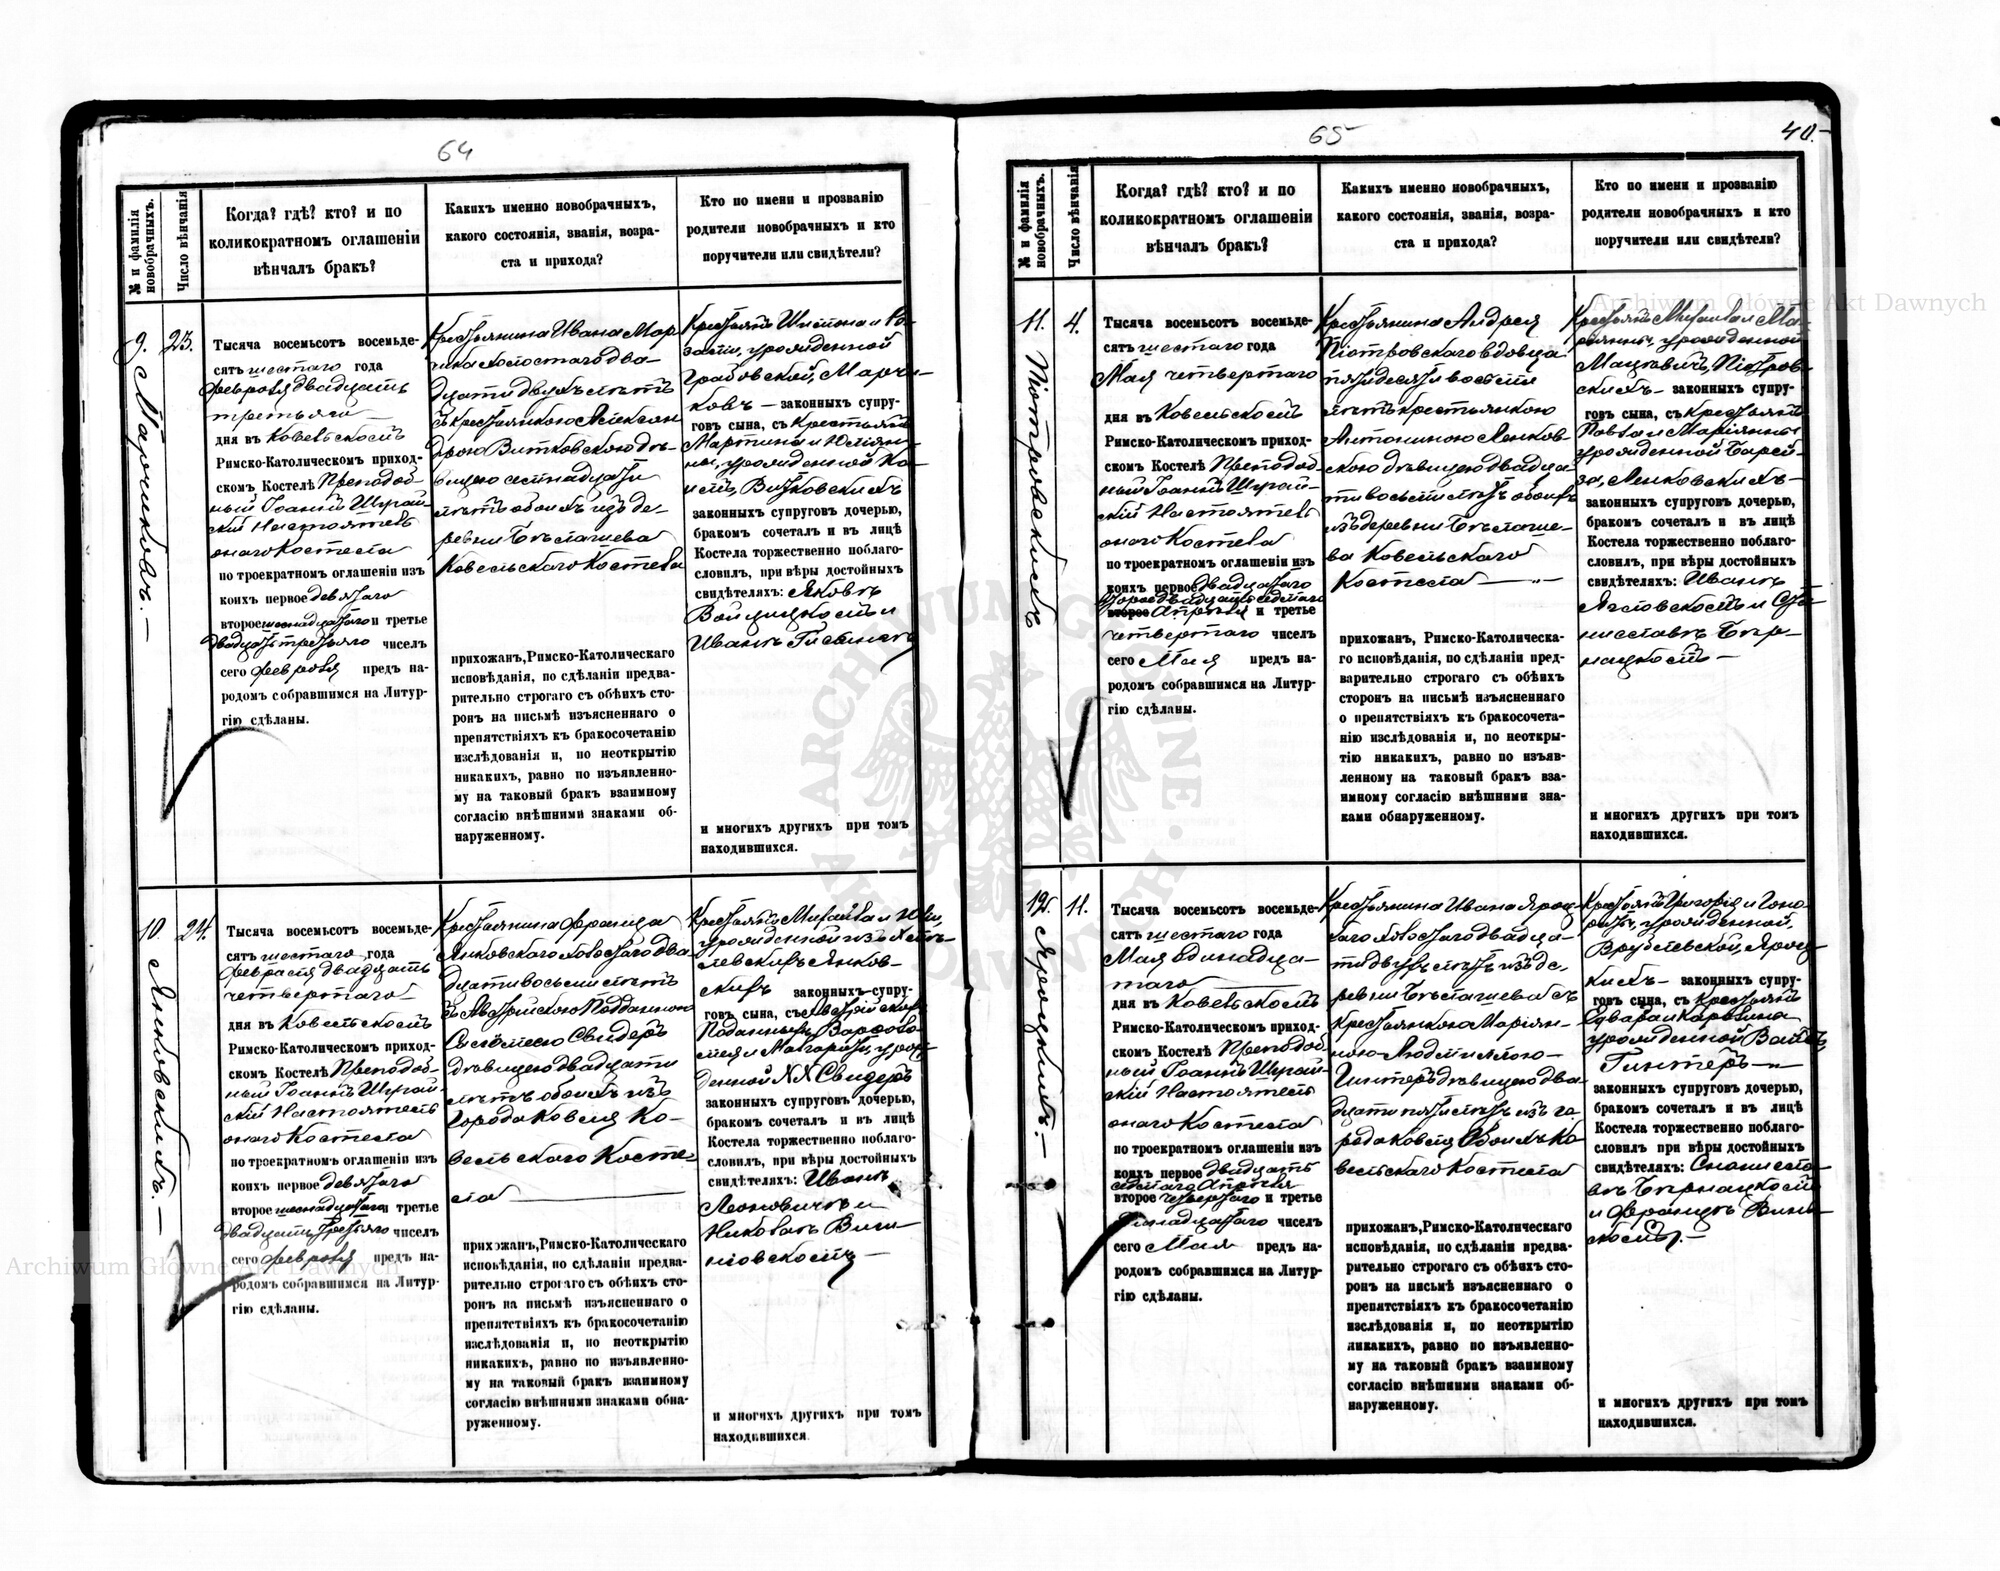 64
№ и фамилія новобрачныхъ.
Число вѣнчанія
Когда? гдѣ? кто? и по
коликократномъ оглашеніи
вѣнчалъ бракъ?
Какихъ именно новобрачныхъ,
какого состоянія, званія, возра-
ста и прихода?
Кто по имени и прозванію
родители новобрачныхъ и кто
поручители или свидѣтели?
9. Марчиковъ. —
23.
Тысяча восемьсотъ восемьде-
сятъ шестаго года
февраля двадцать
третьяго —
дня въ Ковельскомъ
Римско-Католическомъ приход-
скомъ Костелѣ Преподоб-
ный Іоаннъ
скій Настоятель
онаго Костела
по троекратномъ оглашеніи изъ
коихъ первое девятаго
второе шеснадцатаго и третье
двадцать третьяго чиселъ
сего февраля предъ на-
родомъ собравшимся на Литур-
гію сдѣланы.
Крестьянина Ивана Мар-
чика холостаго два-
дцати двухъ лѣтъ
съ крестьянкою Александ-
рою Витковскою дѣ-
вицею
лѣтъ обоихъ изъ де-
ревни
Ковельскаго Костела
прихожанъ, Римско-Католическаго
исповѣданія, по сдѣланіи предва-
рительно строгаго съ обѣихъ сто-
ронъ на письмѣ изъясненнаго о
препятствіяхъ къ бракосочетанію
изслѣдованія и, по неоткрытію
никакихъ, равно по изъявленно-
му на таковый бракъ взаимному
согласію внѣшними знаками об-
наруженному.
Крестьянъ и Ро-
заліи, урожденной
Грабовской, Марчи-
ковъ — законныхъ супру-
говъ сына, съ Крестьянъ
Мартина и
урожденной
Витковскихъ
законныхъ супруговъ дочерью,
бракомъ сочеталъ и въ лицѣ
Костела торжественно поблаго-
словилъ, при вѣры достойныхъ
свидѣтеляхъ: Яковъ
и
Иванъ
и многихъ другихъ при томъ
находившихся.
10. Янковскихъ. —
24.
Тысяча восемьсотъ восемьде-
сятъ шестаго года
февраля двадцать
четвертаго —
дня въ Ковельскомъ
Римско-Католическомъ приход-
скомъ Костелѣ Преподоб-
ный Іоаннъ
скій Настоятель
онаго Костела
по троекратномъ оглашеніи изъ
коихъ первое девятаго
второе шеснадцатаго и третье
двадцать третьяго чиселъ
сего февраля предъ на-
родомъ собравшимся на Литур-
гію сдѣланы.
Крестьянина Франца
Янковскаго холостаго два-
дцати восьми лѣтъ
съ Австрійскою Подданною
Саломеею Свидеръ
дѣвицею двадцати
лѣтъ обоихъ изъ
города Ковля Ко-
вельскаго Косте-
ла —
прихожанъ, Римско-Католическаго
исповѣданія, по сдѣланіи предва-
рительно строгаго съ обѣихъ сто-
ронъ на письмѣ изъясненнаго о
препятствіяхъ къ бракосочетанію
изслѣдованія и, по неоткрытію
никакихъ, равно по изъявленно-
му на таковый бракъ взаимному
согласію внѣшними знаками обна-
руженному.
Крестьянъ Михаила и
урожденной изъ
Янков-
скихъ законныхъ супру-
говъ сына, съ Австрійскихъ
Подданныхъ Варфоло-
мея и Маргариты, урож-
денной NN Свидеръ
законныхъ супруговъ дочерью,
бракомъ сочеталъ и въ лицѣ
Костела торжественно поблаго-
словилъ, при вѣры достойныхъ
свидѣтеляхъ: Иванъ
Леоновичъ и
Николай Виш-
невскомъ —
и многихъ другихъ при томъ
находившихся.
65
40.
№ и фамилія новобрачныхъ.
Число вѣнчанія
Когда? гдѣ? кто? и по
коликократномъ оглашеніи
вѣнчалъ бракъ?
Какихъ именно новобрачныхъ,
какого состоянія, званія, возра-
ста и прихода?
Кто по имени и прозванію
родители новобрачныхъ и кто
поручители или свидѣтели?
11. Піотровскихъ
4.
Тысяча восемьсотъ восемьде-
сятъ шестаго года
Мая четвертаго
дня въ Ковельскомъ
Римско-Католическомъ приход-
скомъ Костелѣ Преподоб-
ный Іоаннъ
скій Настоятель
онаго Костела
по троекратномъ оглашеніи изъ
коихъ первое двадцатаго
второе двадцать седьмаго
второе Апрѣля и третье
четвертаго чиселъ
сего Мая предъ на-
родомъ собравшимся на Литур-
гію сдѣланы.
Крестьянина Андрея
Піотровскаго вдовца
пятидесяти восьми
лѣтъ съ крестьянкою
Антониною Янков-
скою дѣвицею двадца-
ти восьми лѣтъ обоихъ
изъ деревни
ва Ковельскаго
Костела —
прихожанъ, Римско-Католическа-
го исповѣданія, по сдѣланіи пред-
варительно строгаго съ обѣихъ
сторонъ на письмѣ изъясненнаго
о препятствіяхъ къ бракосочета-
нію изслѣдованія и, по неоткры-
тію никакихъ, равно по изъяв-
ленному на таковый бракъ вза-
имному согласію внѣшними зна-
ками обнаруженному.
Крестьянъ Михаила и Ма-
ріянны, урожденной
Мацкевичъ, Піотров-
скихъ — законныхъ супру-
говъ сына, съ Крестьянъ
Павла и Маріянны
урожденной Барей-
за, Янковскихъ —
законныхъ супруговъ дочерью,
бракомъ сочеталъ и въ лицѣ
Костела торжественно поблаго-
словилъ, при вѣры достойныхъ
свидѣтеляхъ: Иванъ
и Ста-
ниславъ Бер-
нацкомъ —
и многихъ другихъ при томъ
находившихся.
12. Яроцкихъ. —
11.
Тысяча восемьсотъ восемьде-
сятъ шестаго года
Мая одинадца-
таго —
дня въ Ковельскомъ
Римско-Католическомъ приход-
скомъ Костелѣ Преподоб-
ный Іоаннъ
скій Настоятель
онаго Костела
по троекратномъ оглашеніи изъ
коихъ первое двадцать
седьмаго Апрѣля
второе четвертаго и третье
одинадцатаго чиселъ
сего Мая предъ на-
родомъ собравшимся на Литур-
гію сдѣланы.
Крестьянина Ивана Яроц-
каго холостаго двадца-
ти двухъ лѣтъ изъ де-
ревни съ
Крестьянкою Маріян-
ною Людмилою —
Гинтеръ дѣвицею два-
дцати пяти лѣтъ изъ го-
рода Ковля обоихъ Ко-
вельскаго Костела
прихожанъ, Римско-Католическаго
исповѣданія, по сдѣланіи предва-
рительно строгаго съ обѣихъ сто-
ронъ на письмѣ изъясненнаго о
препятствіяхъ къ бракосочетанію
изслѣдованія и, по неоткрытію
никакихъ, равно по изъявленно-
му на таковый бракъ взаимному
согласію внѣшними знаками об-
наруженному.
Крестьянъ Григорія и Гоно-
раты, урожденной
Врублевской, Яроц-
кихъ — законныхъ супру-
говъ сына, съ Крестьянъ
Едварда и Каролины
урожденной
Гинтеръ —
законныхъ супруговъ дочерью,
бракомъ сочеталъ и въ лицѣ
Костела торжественно поблаго-
словилъ при вѣры достойныхъ
свидѣтеляхъ: Станисла-
въ Бернацкомъ
и Францъ
скомъ. —
и многихъ другихъ при томъ
находившихся.
Archiwum Główne Akt Dawnych
Archiwum Główne Akt Dawnych
ARCHIWUM GŁÓWNE AKT DAWNYCH